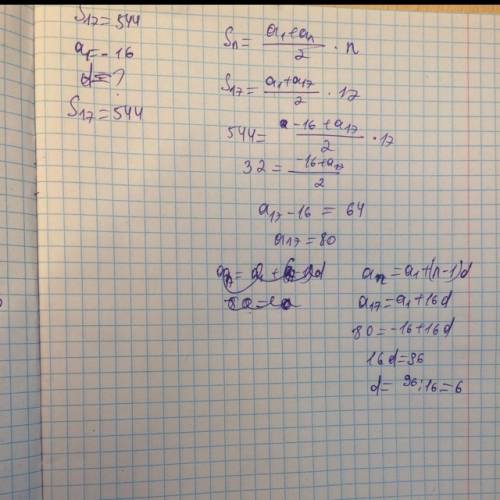 S₁₇ = 544
a₁ = -16
d = ?
S₁₇ = 544
Sₙ = (a₁+aₙ)/2 · n
S₁₇ = (a₁+a₁₇)/2 · 17
544 = (-16+a₁₇)/2 · 17
32 = (-16+a₁₇)/2
a₁₇ - 16 = 64
a₁₇ = 80
aₙ = a₁+(n-1)d
a₁₇ = a₁+16d
80 = -16+16d
16d = 96
d = 96:16 = 6